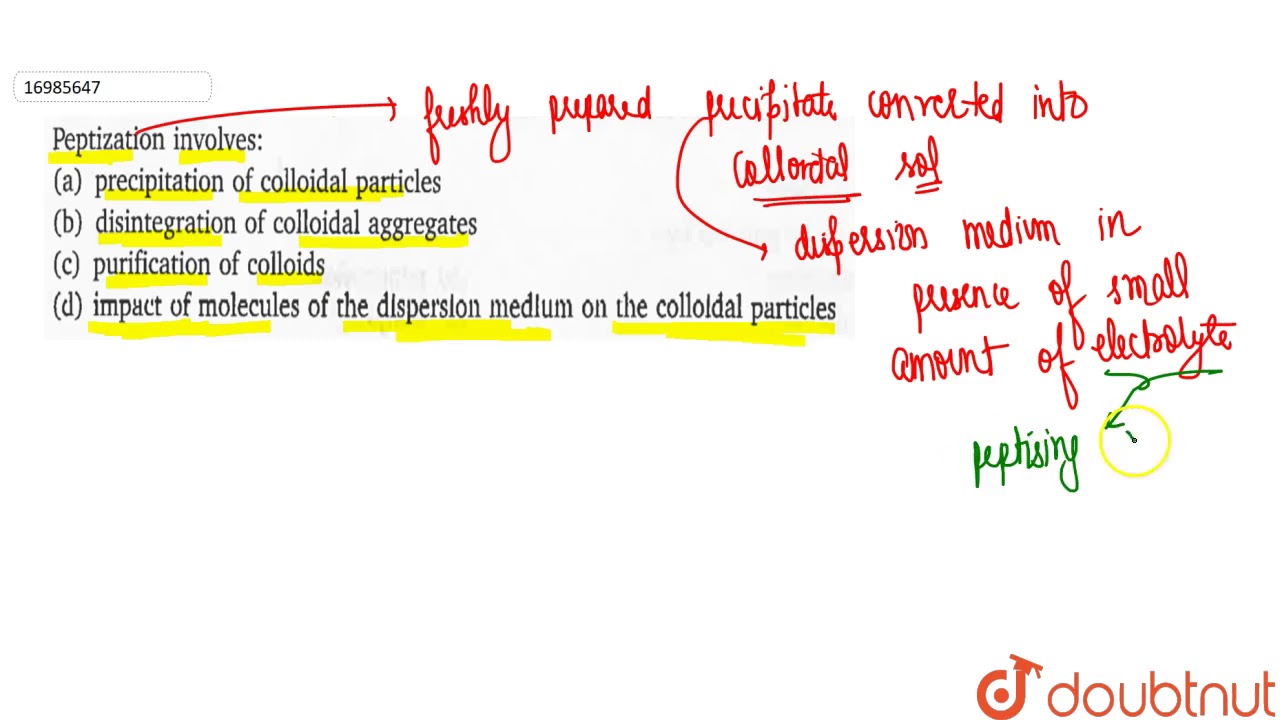 16985647
Peptization involves:
(a) precipitation of colloidal particles
(b) disintegration of colloidal aggregates
(c) purification of colloids
(d) impact of molecules of the dispersion medium on the colloidal particles
freshly prepared precipitate converted into
colloidal sol
dispersion medium in
presence of small
amount of electrolyte
peptising
doubtnut